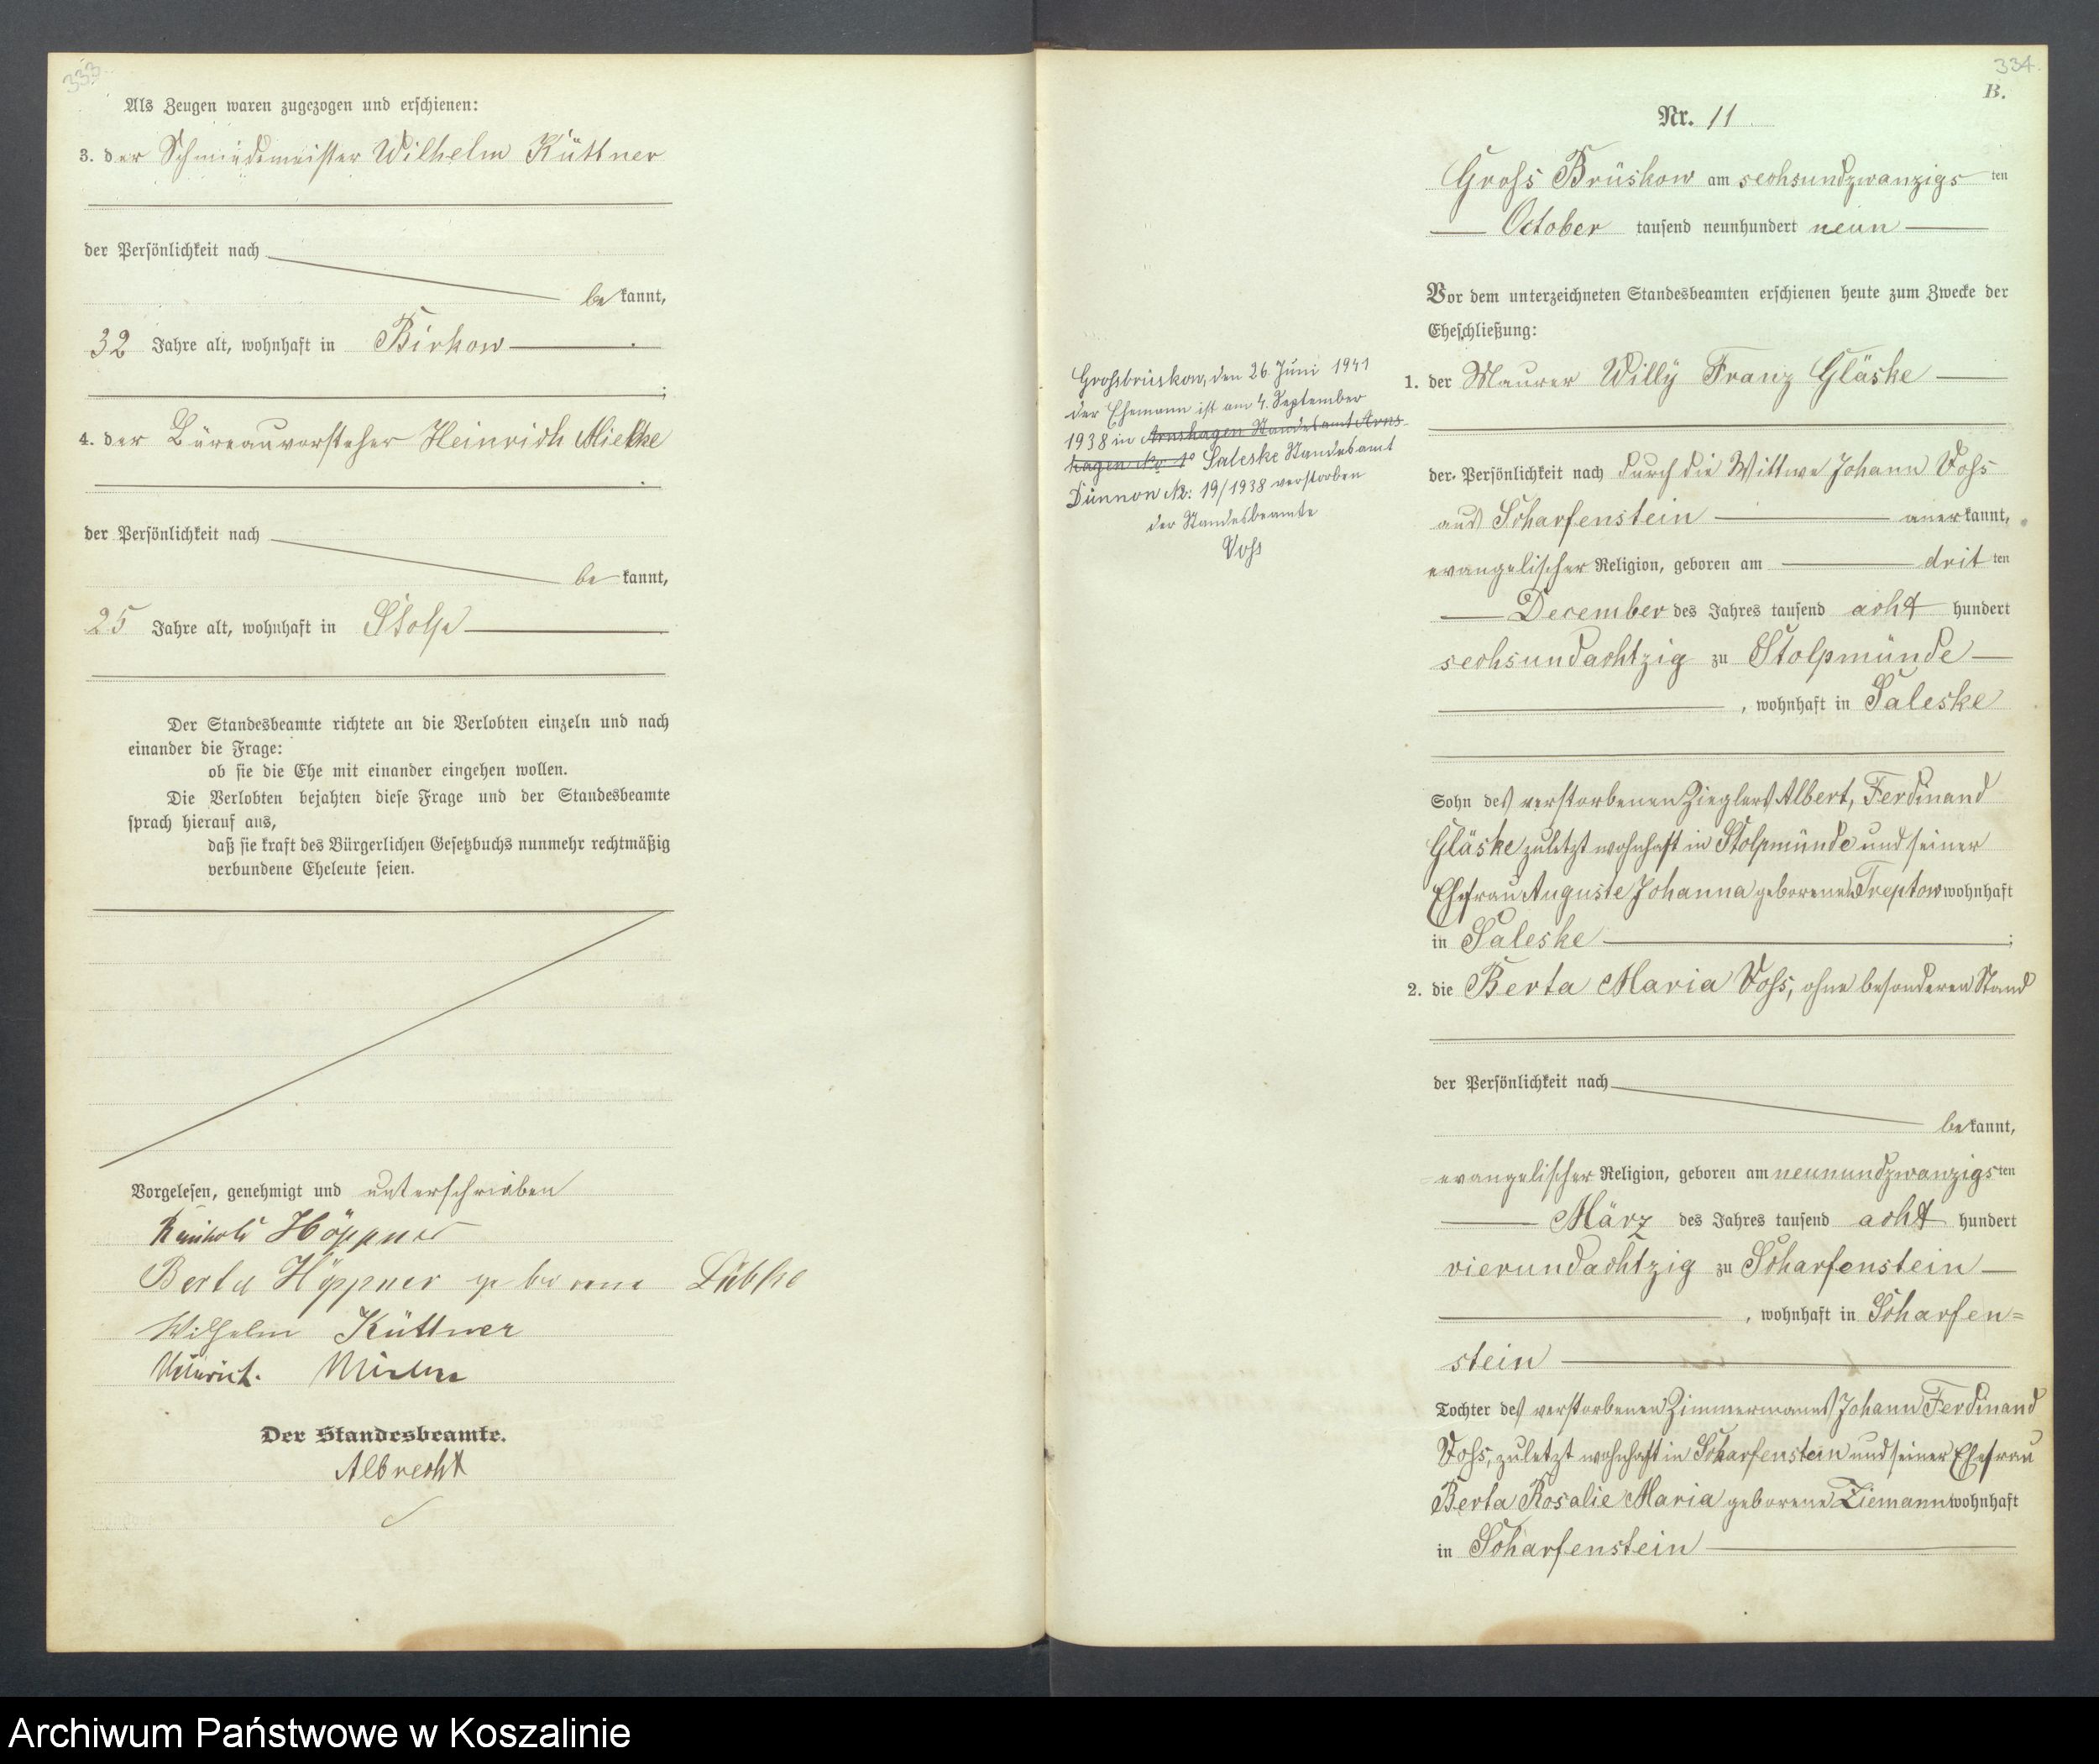 333.
Als Zeugen waren zugezogen und erschienen:
3. der Schmiedemeister Wilhelm Küttner
der Persönlichkeit nach
be kannt,
32 Jahre alt, wohnhaft in Birkow
;
4. der Büreauvorsteher Heinrich Mielke
der Persönlichkeit nach
be kannt,
25 Jahre alt, wohnhaft in Stolp
Der Standesbeamte richtete an die Verlobten einzeln und nach
einander die Frage:
ob sie die Ehe mit einander eingehen wollen.
Die Verlobten bejahten diese Frage und der Standesbeamte
sprach hierauf aus,
daß sie kraft des Bürgerlichen Gesetzbuchs nunmehr rechtmäßig
verbundene Eheleute seien.
Vorgelesen, genehmigt und unterschrieben
Reinhold Höppner
Berta Höppner geborene Lübke
Wilhelm Küttner
Heinrich Mielke
Der Standesbeamte.
Albrecht
334.
B.
Nr. 11.
Gross Brüskow am sechsundzwanzigs ten
October tausend neunhundert neun
Vor dem unterzeichneten Standesbeamten erschienen heute zum Zwecke der
Eheschließung:
1. der Maurer Willy Franz Gläske
der Persönlichkeit nach durch die Wittwe Johann Voss
aus Scharfenstein anerkannt,
evangelischer Religion, geboren am drit ten
December des Jahres tausend acht hundert
sechsundachtzig zu Stolpmünde
, wohnhaft in Saleske
Sohn des verstorbenen Zieglers Albert, Ferdinand
Gläske zuletzt wohnhaft in Stolpmünde und seiner
Ehefrau Auguste Johanna geborenen Treptow wohnhaft
in Saleske ;
2. die Berta Maria Voss, ohne besonderen Stand
der Persönlichkeit nach
be kannt,
evangelischer Religion, geboren am neunundzwanzigs ten
März des Jahres tausend acht hundert
vierundachtzig zu Scharfenstein
, wohnhaft in Scharfen=
stein
Tochter des verstorbenen Zimmermanns Johann Ferdinand
Voss, zuletzt wohnhaft in Scharfenstein und seiner Ehefrau
Berta Rosalie Maria geborene Ziemann wohnhaft
in Scharfenstein
Grossbrüskow, den 26. Juni 1941
der Ehemann ist am 4. September
1938 in Arnshagen Standesamt Arns-
hagen No 10 Saleske Standesamt
Dünnow No: 19/1938 verstorben
der Standesbeamte
Voss
Archiwum Państwowe w Koszalinie